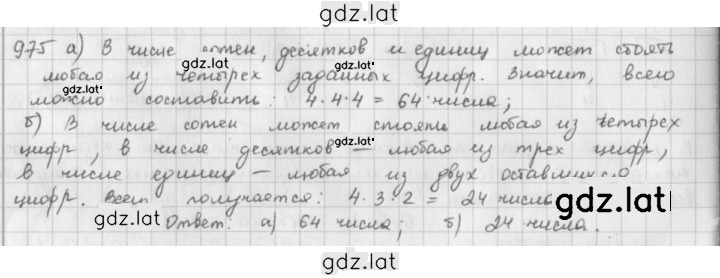 gdz.lat
975 а) В числе сотен, десятков и единиц может стоять
gdz.lat
любая из четырех заданных цифр. Значит, всего
gdz.lat
можно составить: 4·4·4 = 64 числа;
б) В числе сотен может стоять любая из четырех
gdz.lat
цифр, в числе десятков — любая из трех цифр,
в числе единиц — любая из двух оставшихся
цифр. Всего получается: 4·3·2 = 24 числа
gdz.lat
gdz.lat
Ответ: а) 64 числа; б) 24 числа.
gdz.lat